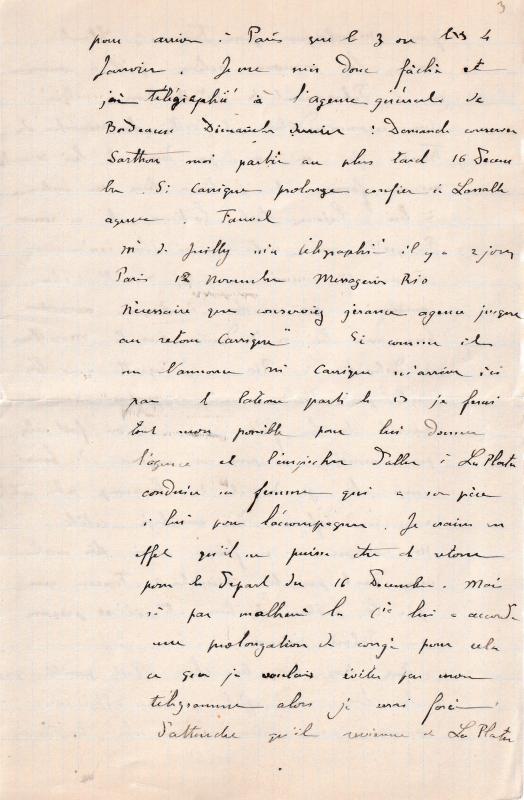 3
pour arriver à Paris que le 3 ou le 4
Janvier. Je me suis donc fâché et
j'ai télégraphié à l'agence générale de
Bordeaux Dimanche dernier : Demande conserver
Sarthou moi partir au plus tard 16 Decem
bre. Si Carrigue prolonge confier à Lassalle
agence. Fauvel
Mr de Juilly m'a télégraphié il y a 2 jours
Paris 12 Novembre Messageries Rio
Nécessaire que conserviez gérance agence jusque
au retour Carrigue" Si comme il
me l'annonce Mr Carrigue n'arrive ici
par le bateau parti le je ferai
tout mon possible pour lui donner
l'agence et l'empêcher d'aller à La Plata
conduire sa femme qui a son père
à lui pour l'accompagner. Je crains en
effet qu'il ne puisse être de retour
pour le départ du 16 Decembre. Mais
si par malheur la Cie lui a accordé
une prolongation de congé pour cela
ce que je voulais éviter par mon
télégramme alors je serai forcé
d'attendre qu'il revienne de La Plata